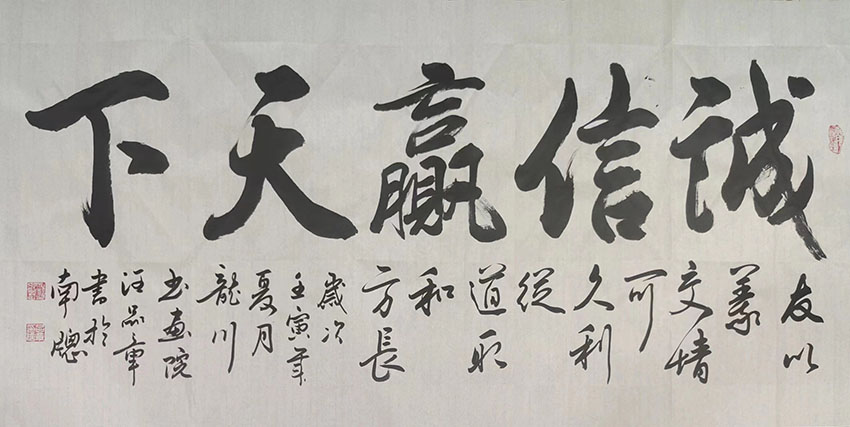 誠信贏天下
友以
義
交情
可
久利
從
道取
和
方長
歲次
壬寅年
夏月
龍川
书画院
汪品章
書於
南牕